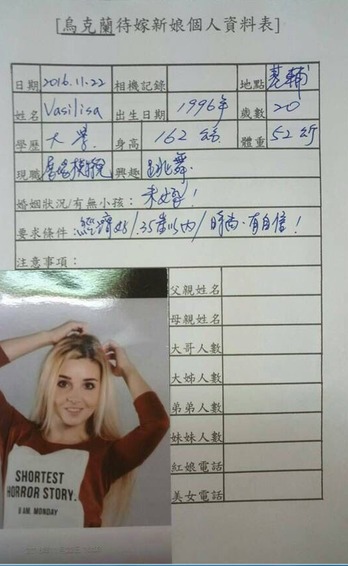 [烏克蘭待嫁新娘個人資料表]
日期 2016.11.22 相機記錄 地點 基輔
姓名 Vasilisa 出生日期 1996年 歲數 20
學歷 大學 身高 162公分 體重 52公斤
現職 興趣 跳舞
婚姻狀況/有無小孩： 未婚！
要求條件： 經濟好/35歲以內/時尚、有自信！
注意事項：
父親姓名
母親姓名
大哥人數
大姊人數
弟弟人數
妹妹人數
紅娘電話
美女電話
SHORTEST
HORROR STORY.
8 AM. MONDAY